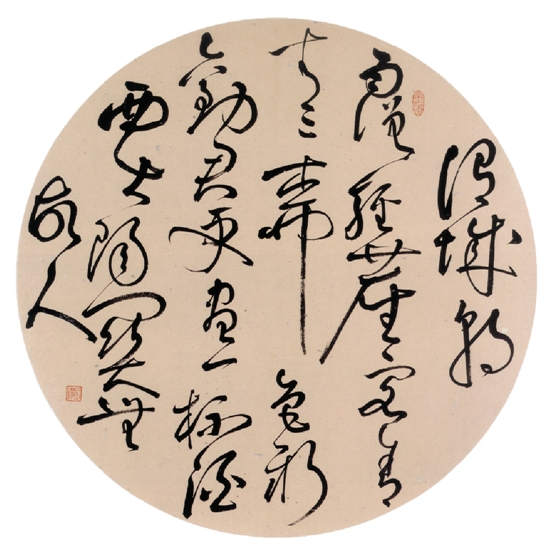 渭城朝
雨浥輕塵客舍
青々柳色新
勸君更盡一杯酒
西出陽關無
故人